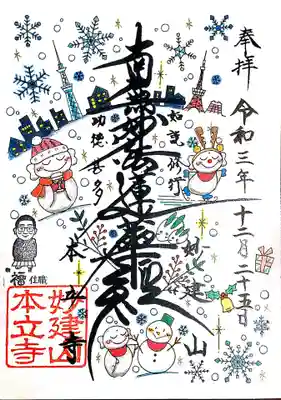 奉拝
令和三年十二月二十五日
南無妙法蓮華経
如説修行
功徳甚多
妙建山
本立寺
住職
妙建山
本立寺